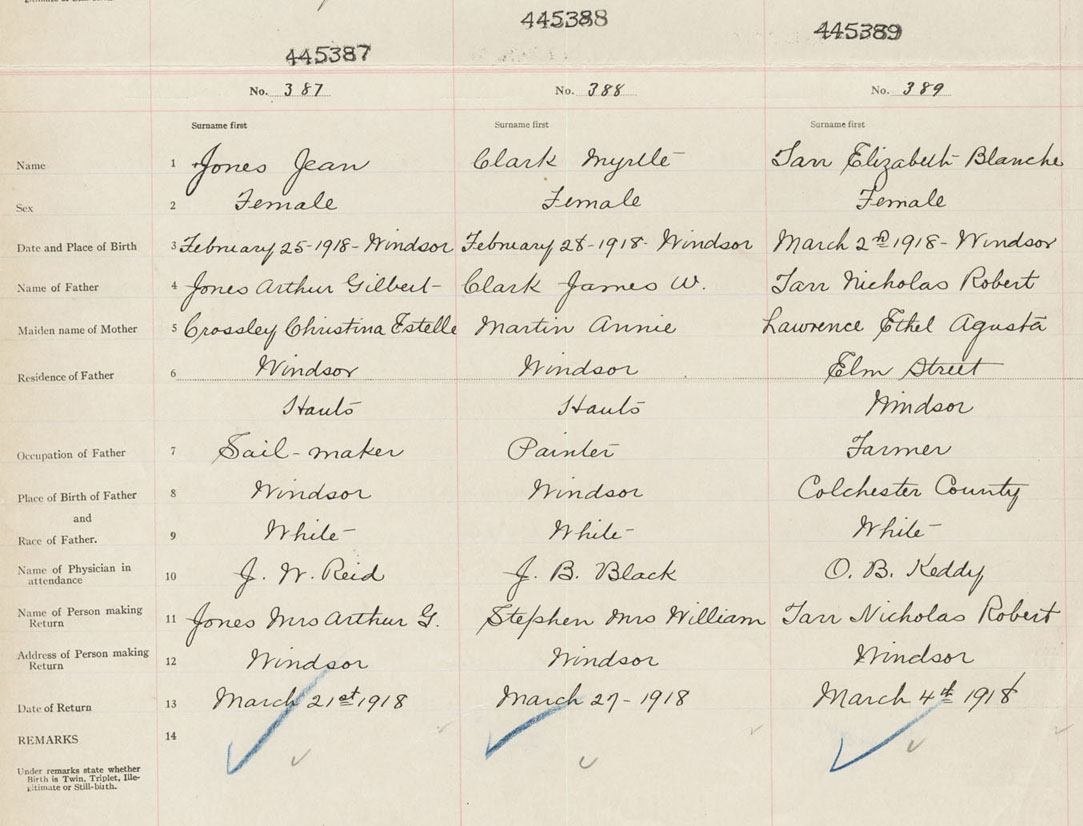 445387 445388 445389
No. 387 No. 388 No. 389
Surname first Surname first Surname first
Name 1 Jones Jean Clark Myrtle Tarr Elizabeth Blanche
Sex 2 Female Female Female
Date and Place of Birth 3 February 25-1918-Windsor February 28-1918-Windsor March 2nd 1918-Windsor
Name of Father 4 Jones Arthur Gilbert Clark James W. Tarr Nicholas Robert
Maiden name of Mother 5 Crossley Christina Estelle Martin Annie Lawrence Ethel Agusta
Residence of Father 6 Windsor Windsor Elm Street
Hants Hants Windsor
Occupation of Father 7 Sail-maker Painter Farmer
Place of Birth of Father 8 Windsor Windsor Colchester County
and
Race of Father. 9 White White White
Name of Physician in attendance 10 J. W. Reid J. B. Black O. B. Keddy
Name of Person making Return 11 Jones Mrs Arthur G. Stephen Mrs William Tarr Nicholas Robert
Address of Person making Return 12 Windsor Windsor Windsor
Date of Return 13 March 21st 1918 March 27-1918 March 4th 1918
REMARKS 14
Under remarks state whether
Birth is Twin, Triplet, Ille-
gitimate or Still-birth.